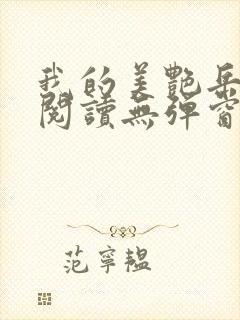 我的美艷岳
閱讀無彈窗
范寧韞